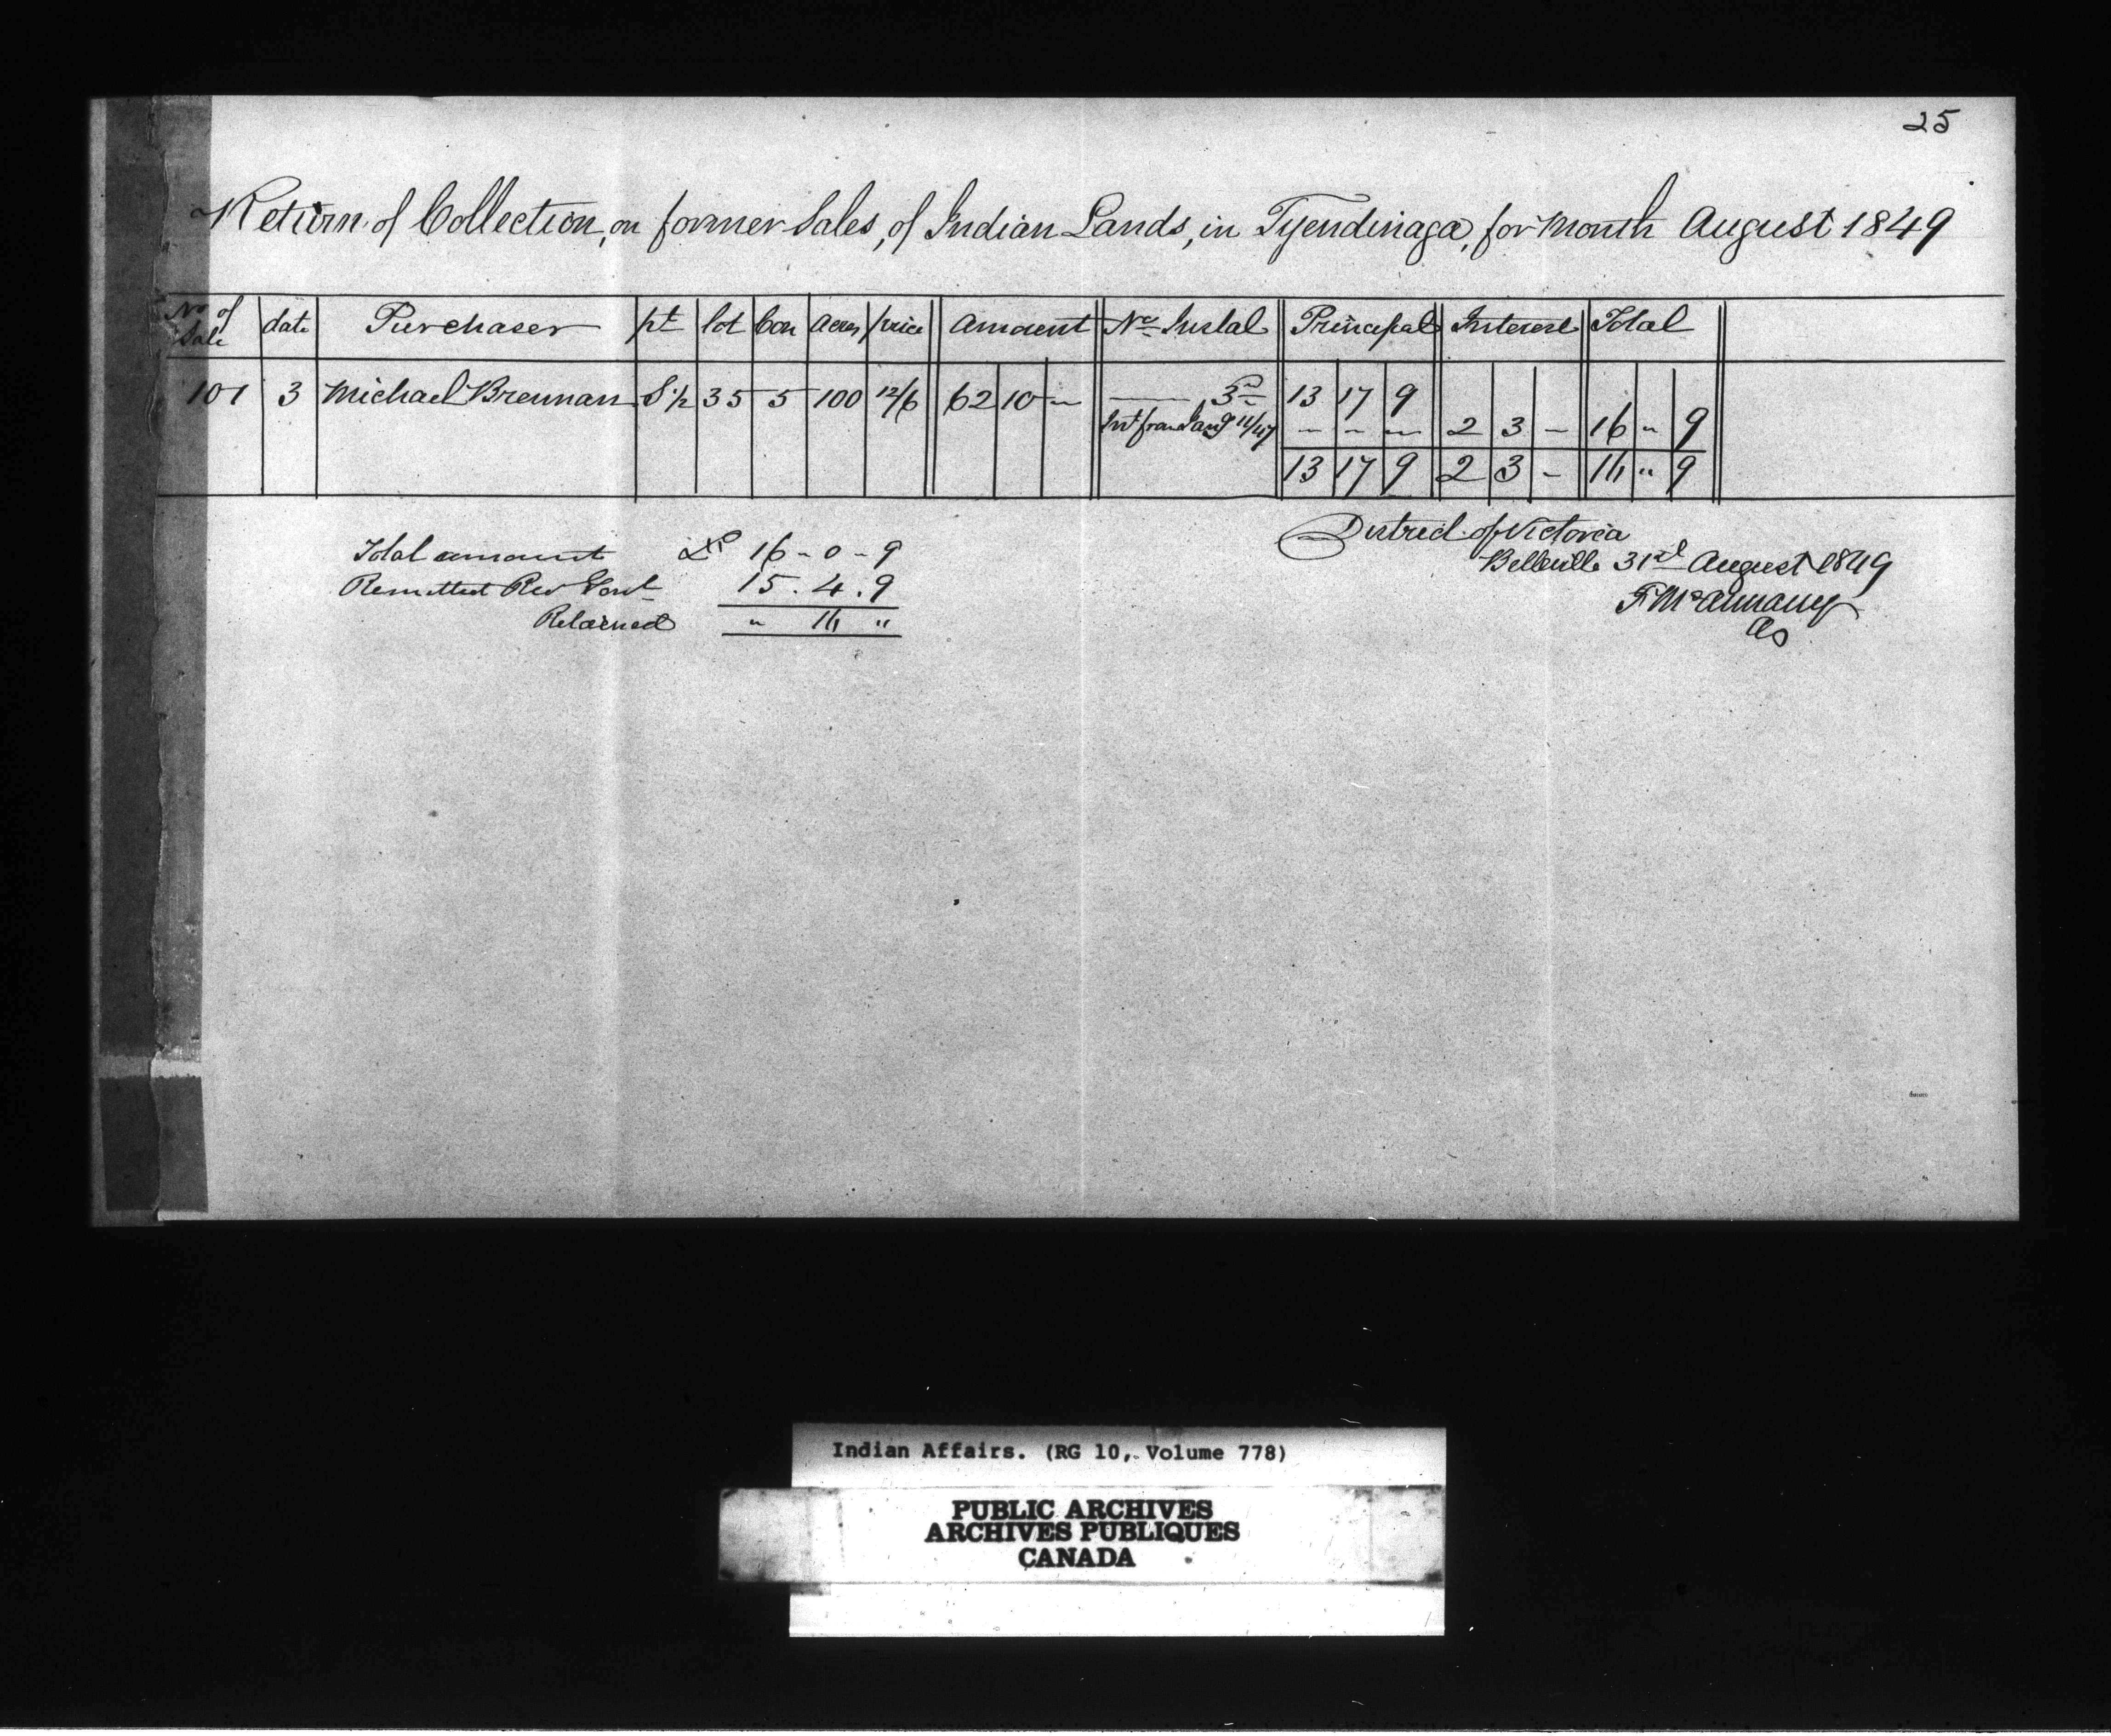 25
Return of Collection, on former Sales, of Indian Lands, in Tyendinaga, for Month August 1849
No of Sale date Purchaser pt lot Con Acres price Amount No Instal Principal Interest Total
101 3 Michael Brennan S ½ 35 5 100 12/6 62 10 — 3rd 13 17 9
Int from Jany 11/47 — — — 2 3 — 16 " 9
13 17 9 2 3 — 16 " 9
District of Victoria
Belleville 31st August 1849
F McAnnany
As
Total amount 16 - 0 - 9
Remitted Rec Genl 15 . 4 . 9
Retained " 16 "
Indian Affairs. (RG 10, Volume 778)
PUBLIC ARCHIVES
ARCHIVES PUBLIQUES
CANADA